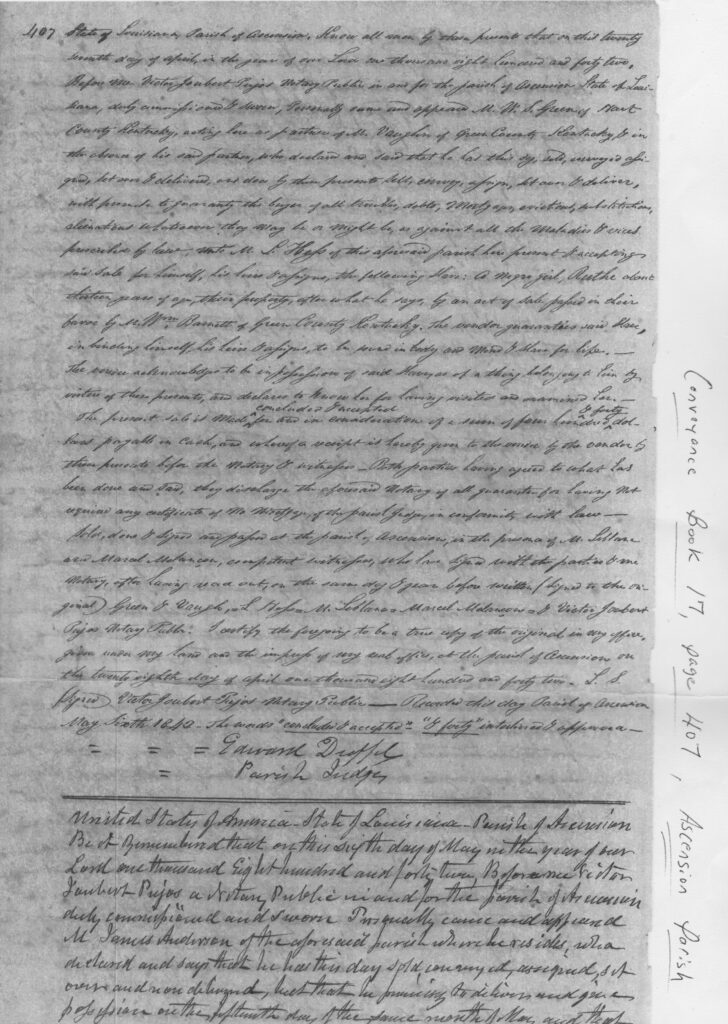 407 State of Louisiana, Parish of Ascension. Know all men by these presents that on this twenty
seventh day of april, in the year of our Lord one thousand eight hundred and forty two,
Before me Victor Joubert Pujos Notary Public in and for the parish of Ascension State of Loui-
siana, duly commissioned & sworn, Personally came and appeared M. W. S. Green of Hart
County Kentucky, acting here as partner of M. Vaughn of Green County Kentucky, & in
the absence of his said partner, who declared and said that he has this day, sold, conveyed assi-
gned, set over & delivered, and does by these presents sell, convey, assign, set over & deliver,
with promise to guaranty the buyer of all troubles, debts, Mortgages, evictions, substitutions,
alienations whatsoever they may be or might be, as against all the Maladies & vices
prescribed by law, unto M. L. of this aforesaid parish here present & accepting
said sale for himself, his heirs & assigns, the following slave: a Negro girl, about
thirteen years of age, their property, after what he says, by an act of sale passed in their
favor by M. Wm. Barnett of Green County Kentucky. The vendor guaranties said slave,
in binding himself, his heirs & assigns, to be sound in body and Mind & slave for life. —
The vendee acknowledges to be in possession of said slave, as of a thing belonging to him by
virtue of these presents, and declares to know her for having visited and examined her. —
The present sale is Made, concluded & accepted for and in consideration of a sum of four hundred & forty dol-
lars payable in Cash, and whereof a receipt is hereby given to the vendee by the vendor by
these presents before the Notary & witnesses — Both parties having agreed to what has
been done and said, they discharge the aforesaid Notary of all guarantee for having not
required any certificate of No Mortgage, of the parish Judge, in conformity with law —
done & signed and passed at the parish of Ascension, in the presence of M. Leblanc
and Marcel Melancon, competent witnesses, who have signed with the parties & me
Notary, after having read out, on the same day & year before written (Signed in the ori-
ginal) Green & Vaughn, L. M. Leblanc Marcel Melancon & Victor Joubert
Pujos Notary Public. I certify the foregoing to be a true copy of the original in my office,
given under my hand and the impress of my seal office, at the parish of Ascension on
the twenty eighth day of april one thousand eight hundred and forty two. L. S.
(Signed) Victor Joubert Pujos Notary Public — Recorded this day Parish of Ascension
May Sixth 1842. The words "concluded & accepted" "& forty" interlined & approved —
= = = Edward Duffel
= Parish Judge
United States of America State of Louisiana Parish of Ascension
Be it Remembered that on this Sixth day of May in the year of our
Lord one thousand Eight hundred and forty two, Before me Victor
Joubert Pujos a Notary Public in and for the parish of Ascension
duly commissioned and Sworn Personally came and appeared
M James Anderson of the aforesaid parish where he resides, who
declared and says that he has this day sold, conveyed, assigned, set
over and non delivered, but that he promises to deliver and give
possession on the fifteenth day of the same month of May and that
Conveyance Book 17, page 407, Ascension Parish